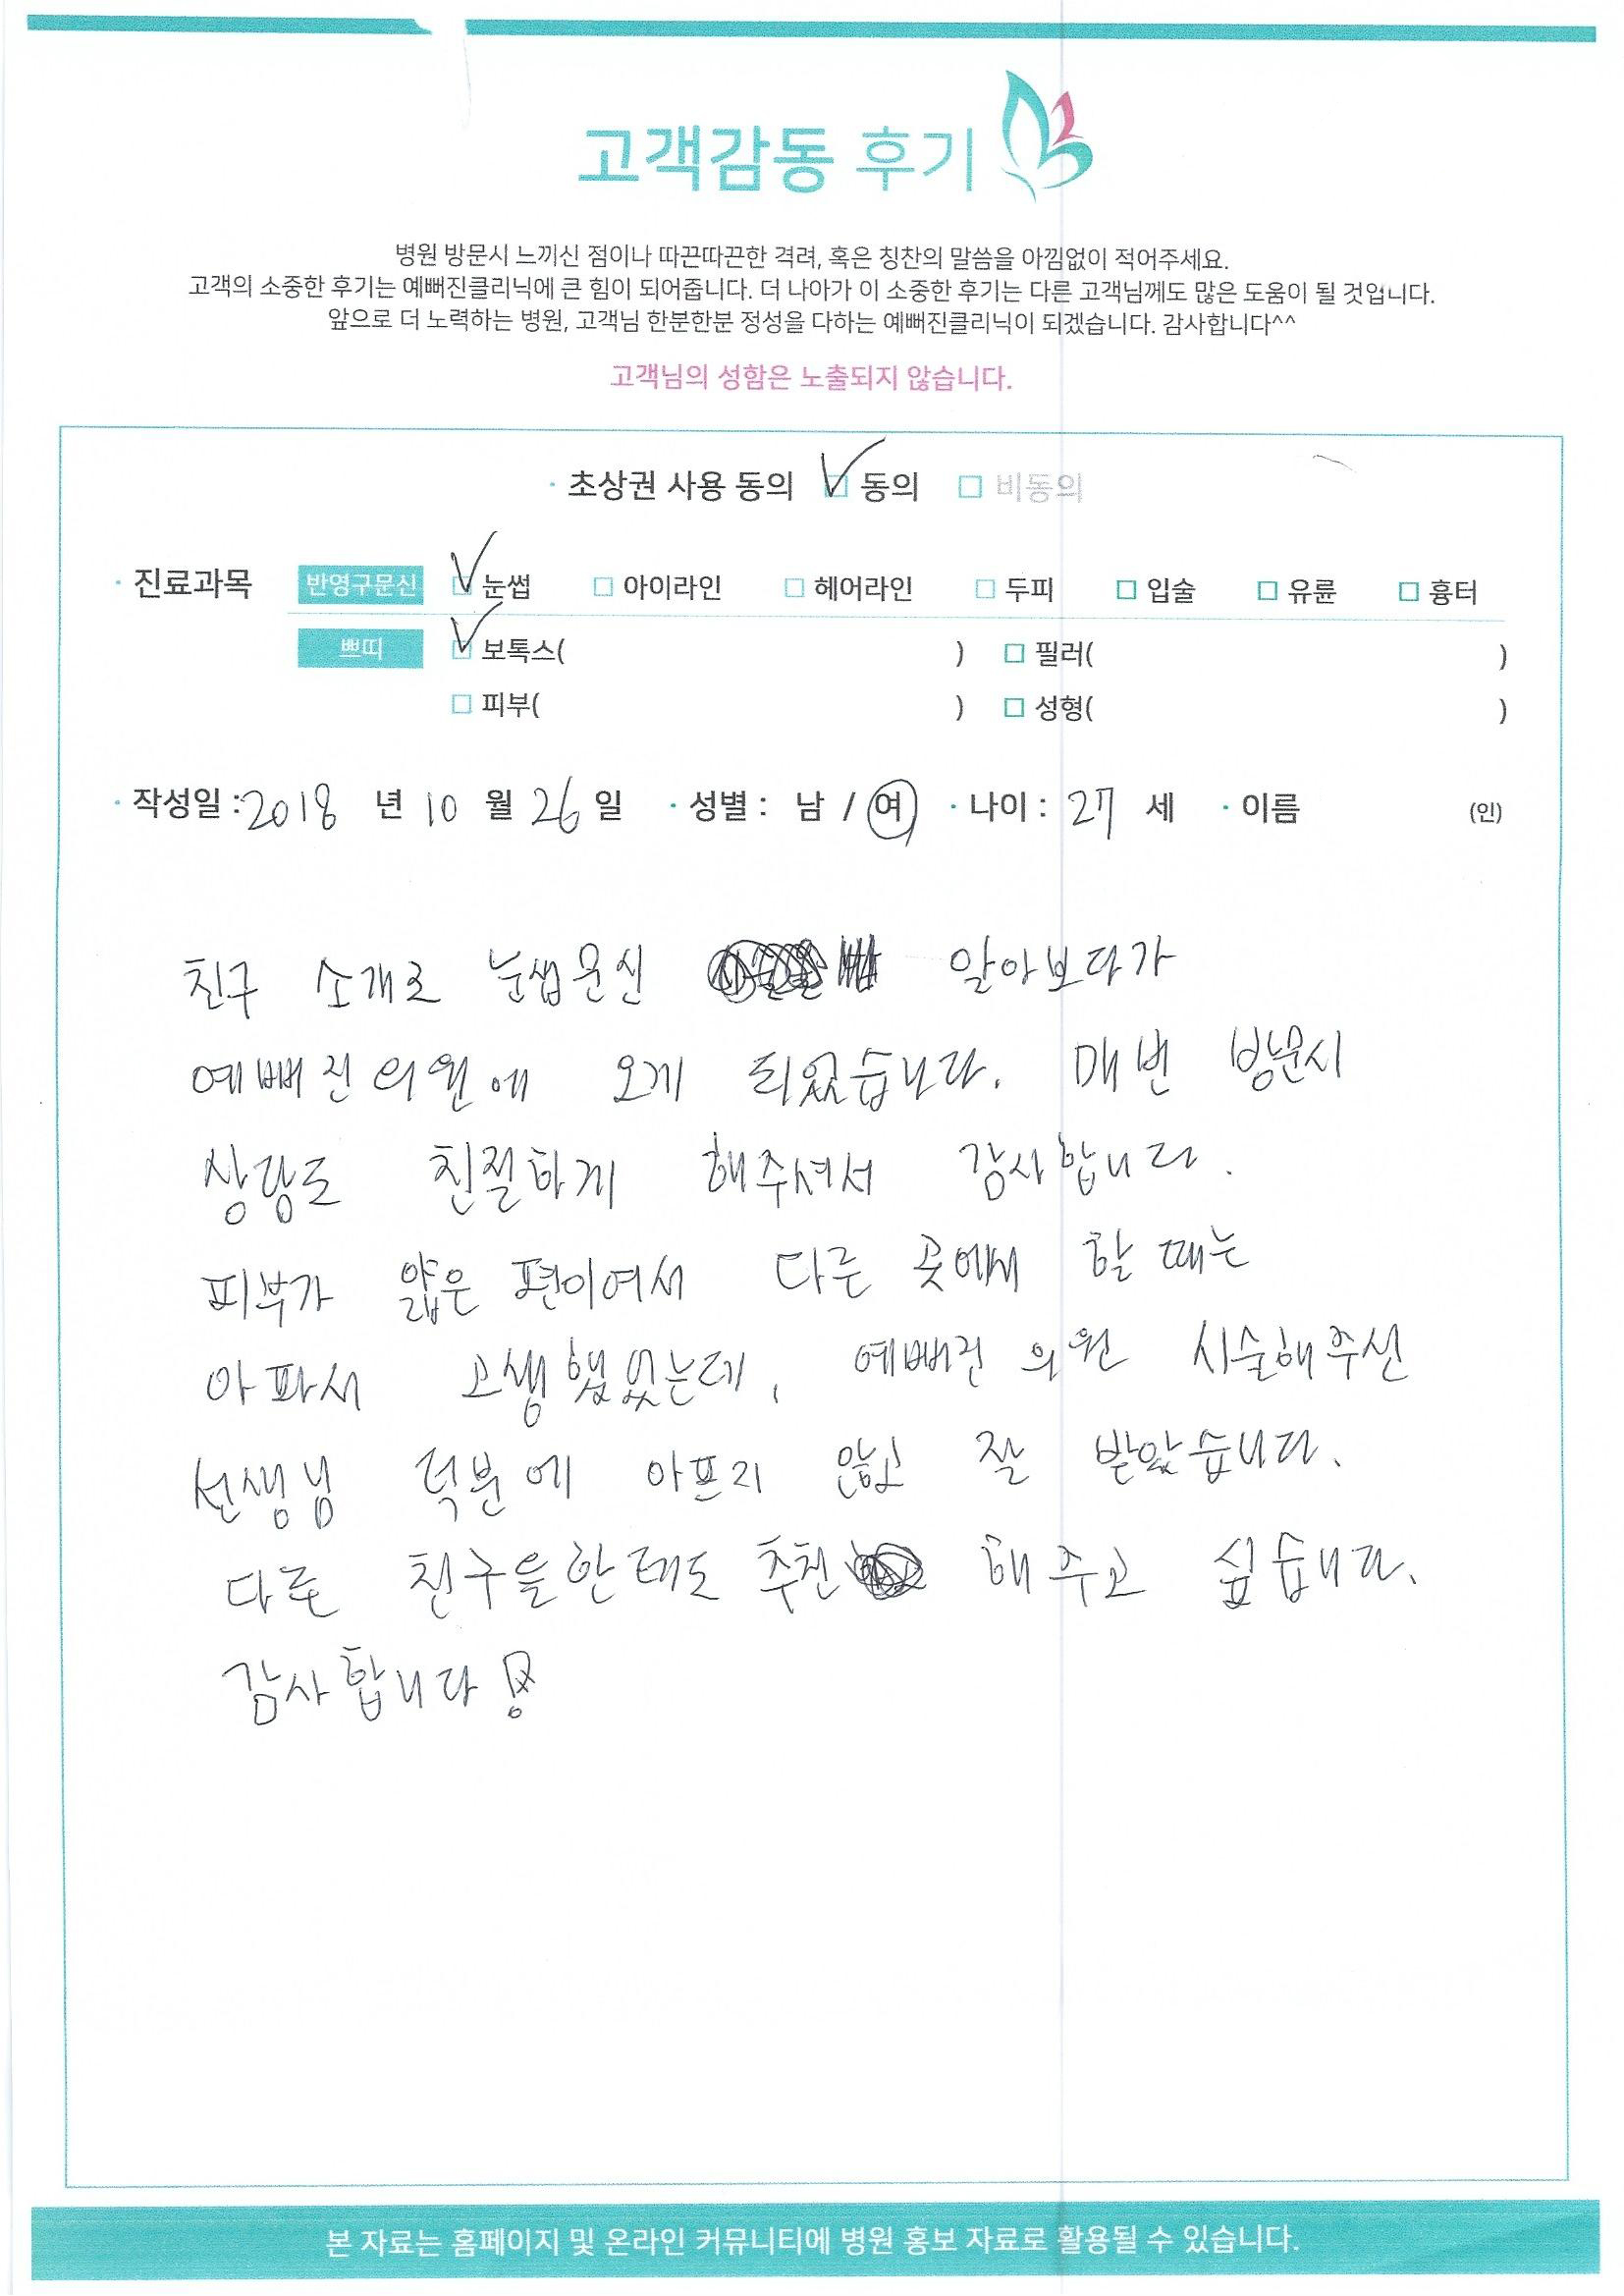 고객감동 후기
병원 방문시 느끼신 점이나 따끈따끈한 격려, 혹은 칭찬의 말씀을 아낌없이 적어주세요.
고객의 소중한 후기는 예뻐진클리닉에 큰 힘이 되어줍니다. 더 나아가 이 소중한 후기는 다른 고객님께도 많은 도움이 될 것입니다.
앞으로 더 노력하는 병원, 고객님 한분한분 정성을 다하는 예뻐진클리닉이 되겠습니다. 감사합니다^^
고객님의 성함은 노출되지 않습니다.
· 초상권 사용 동의 ☑ 동의 □ 비동의
· 진료과목 반영구문신 ☑ 눈썹 □ 아이라인 □ 헤어라인 □ 두피 □ 입술 □ 유륜 □ 흉터
쁘띠 ☑ 보톡스( ) □ 필러( )
□ 피부( ) □ 성형( )
· 작성일 : 2018 년 10 월 26 일 · 성별 : 남 / 여 · 나이 : 27 세 · 이름 (인)
친구 소개로 눈썹문신 알아보다가
예뻐진의원에 오게 되었습니다. 매번 방문시
상담도 친절하게 해주셔서 감사합니다.
피부가 얇은 편이여서 다른 곳에서 할 때는
아파서 고생했었는데, 예뻐진의원 시술해주신
선생님 덕분에 아프지 않고 잘 받았습니다.
다른 친구들한테도 추천 해주고 싶습니다.
감사합니다!
본 자료는 홈페이지 및 온라인 커뮤니티에 병원 홍보 자료로 활용될 수 있습니다.